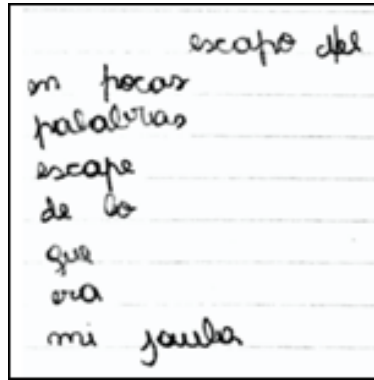 escapo del
en pocas
palabras
escape
de lo
que
era
mi jaula